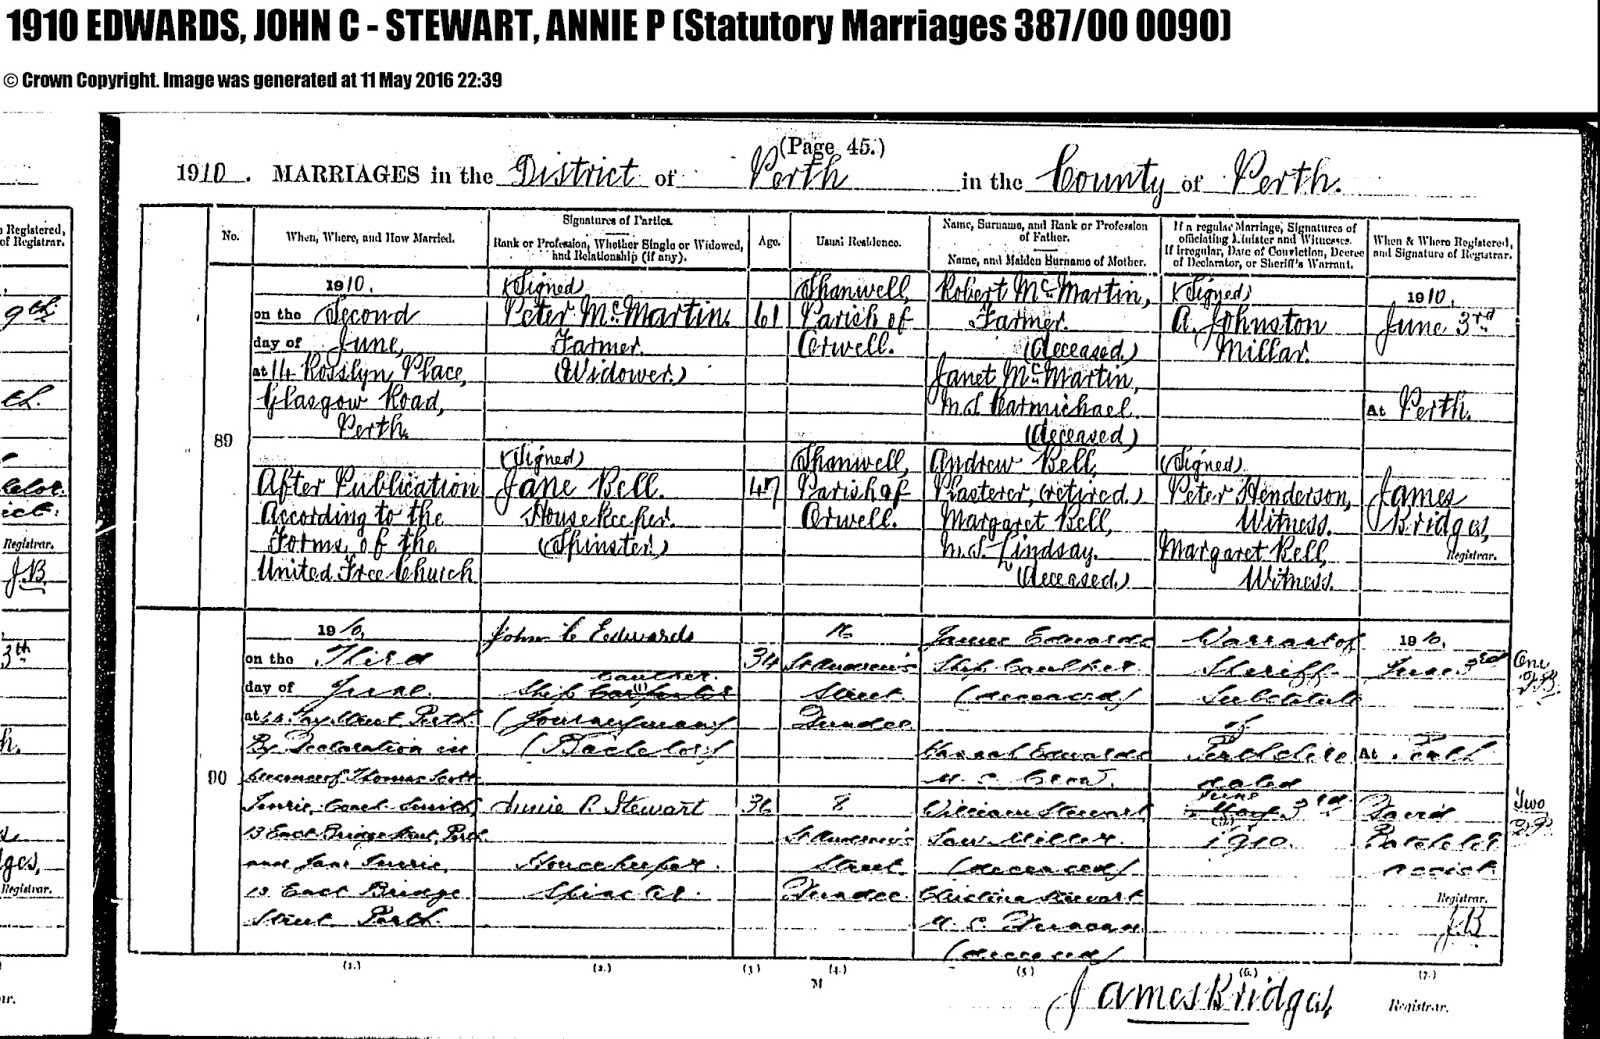 1910 EDWARDS, JOHN C - STEWART, ANNIE P (Statutory Marriages 387/00 0090)
© Crown Copyright. Image was generated at 11 May 2016 22:39
(Page 45.)
1910. MARRIAGES in the District of Perth in the County of Perth.
Registered,
of Registrar.
No.
When, Where, and How Married.
Signatures of Parties.
Rank or Profession, Whether Single or Widowed,
and Relationship (if any).
Age.
Usual Residence.
Name, Surname, and Rank or Profession
of Father.
Name, and Maiden Surname of Mother.
If a regular Marriage, Signatures of
officiating Minister and Witnesses.
If irregular, Date of Conviction, Decree
of Declarator, or Sheriff's Warrant.
When & Where Registered,
and Signature of Registrar.
89
1910,
on the Second
day of June,
at 14 Rosslyn Place,
Glasgow Road,
Perth.
After Publication
According to the
Forms of the
United Free Church
(Signed)
Peter McMartin.
Farmer.
(Widower)
(Signed)
Jane Bell.
Housekeeper.
(Spinster)
61
47
Shanwell,
Parish of
Orwell.
Shanwell,
Parish of
Orwell.
Robert McMartin,
Farmer.
(deceased)
Janet McMartin,
m.s. Carmichael.
(deceased)
Andrew Bell,
Plasterer, (retired)
Margaret Bell,
m.s. Lindsay.
(deceased)
(Signed)
A. Johnston
Millar.
(Signed)
Peter Henderson,
Witness.
Margaret Bell,
Witness.
1910,
June 3rd
At Perth.
James
Bridges,
Registrar.
90
1910,
on the Third
day of June
at 44 Tay Street Perth
By Declaration in
presence of Thomas Scott
13 East Bridge Street, Perth
and Jane
13 East Bridge
Street Perth
John C Edwards
Caulker
Ship Carpenter
(Journeyman)
(Bachelor)
Annie P. Stewart
Housekeeper
Spinster
34
36
St Andrew's
Street
Dundee
8
St Andrew's
Street
Dundee
James Edwards
Ship Caulker
(deceased)
Hannah Edwards
William Stewart
Saw Miller
(deceased)
Christina Stewart
M. S. Duncan
(deceased)
Warrant of
Sheriff
Substitute
of
Perthshire
dated
June
May 3rd
1910.
1910,
June 3rd
At Perth
David
Batchelor
Assist
Registrar.
J.B
One
J.B.
Two
(1.)
(2.)
(3.)
(4.)
(5.)
(6.)
(7.)
M
James Bridges,
Registrar.